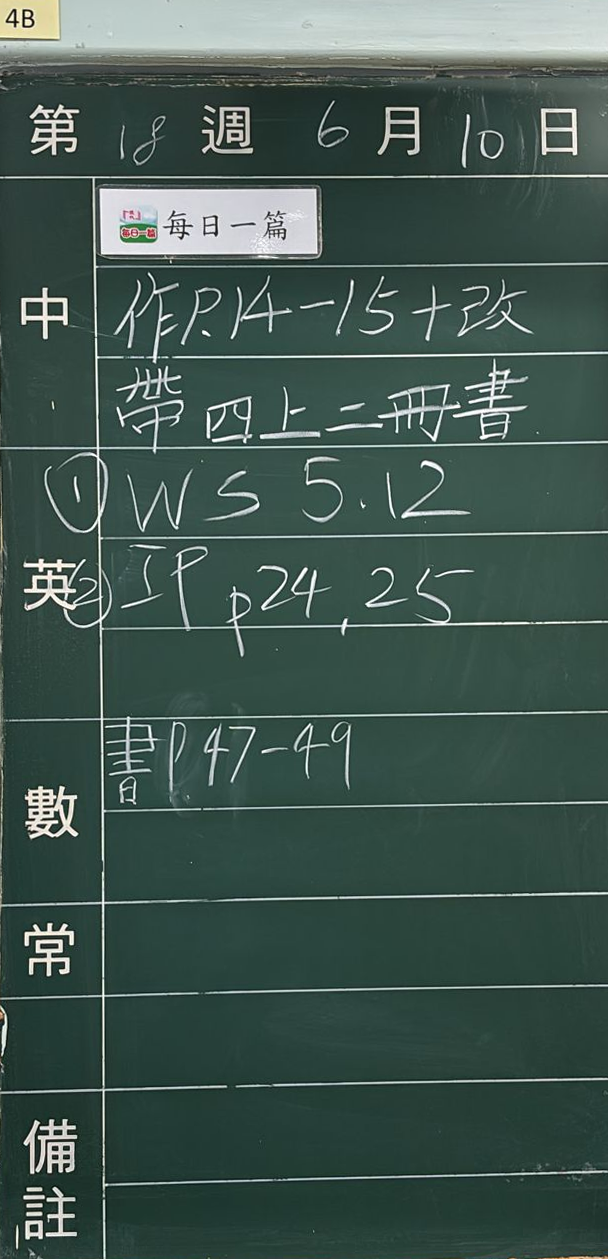 4B
第 18 週 6 月 10 日
每日一篇
每日一篇
中
作P.14-15+改
帶四上二冊書
英
① WS 5.12
② IP p24, 25
數
書P.47-49
常
備註